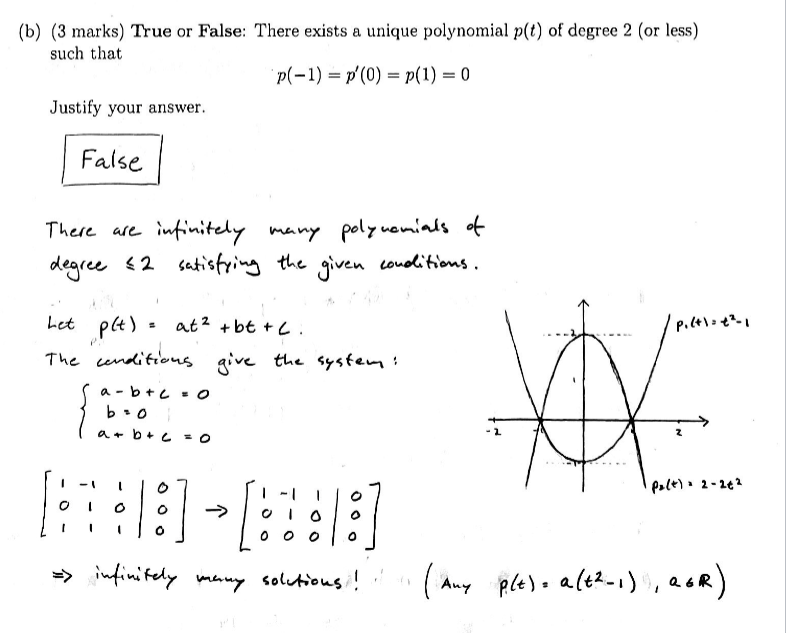 (b) (3 marks) True or False: There exists a unique polynomial p(t) of degree 2 (or less)
such that
p(−1) = p′(0) = p(1) = 0
Justify your answer.
False
There are infinitely many polynomials of
degree ≤2 satisfying the given conditions.
Let p(t) = at² + bt + c.
The conditions give the system:
a - b + c = 0
b = 0
a + b + c = 0
p₁(t) = t²-1
-2 2
p₂(t) = 2-2t²
1 -1 1 | 0 1 -1 1 | 0
0 1 0 | 0 → 0 1 0 | 0
1 1 1 | 0 0 0 0 | 0
⇒ infinitely many solutions! (Any p(t) = a(t²-1), a∈R)